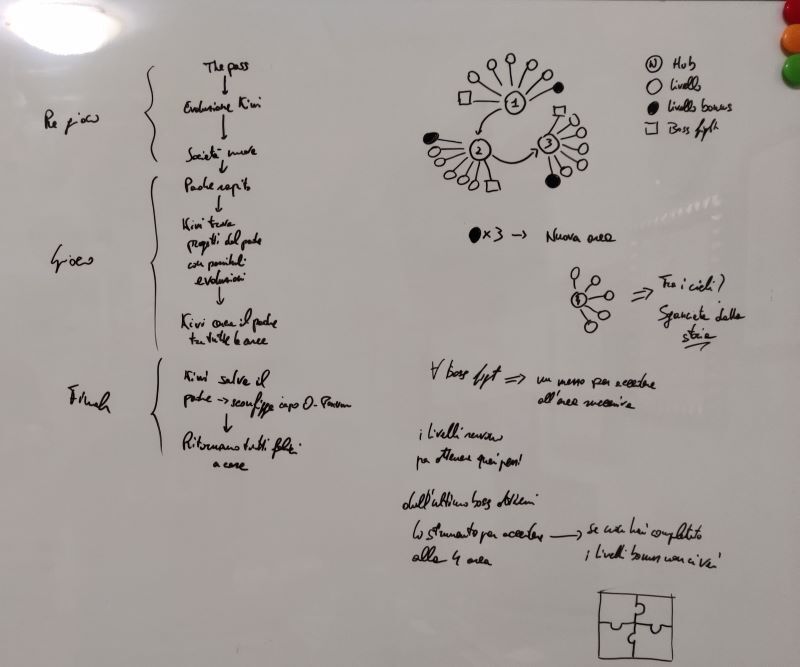 Pre gioco
The pass
Evoluzione Kiwi
Società nuova
Gioco
Padre rapito
Kiwi trova
progetti del padre
con possibili
evoluzioni
Kiwi cerca il padre
tra tutte le aree
Finale
Kiwi salva il
padre → sconfigge capo
Ritornano tutti felici
a casa
1
2
3
N Hub
Livello
Livello bonus
Boss fight
×3 → Nuova area
4
⇒ Tra i cieli?
Sganciata dalla
storia
∀ boss fight ⇒ un mezzo per accedere
all'area successiva
i livelli servono
per ottenere quei pezzi
dall'ultimo boss ottieni
lo strumento per accedere → se non hai completato
alla 4 area
i livelli bonus non ci vai